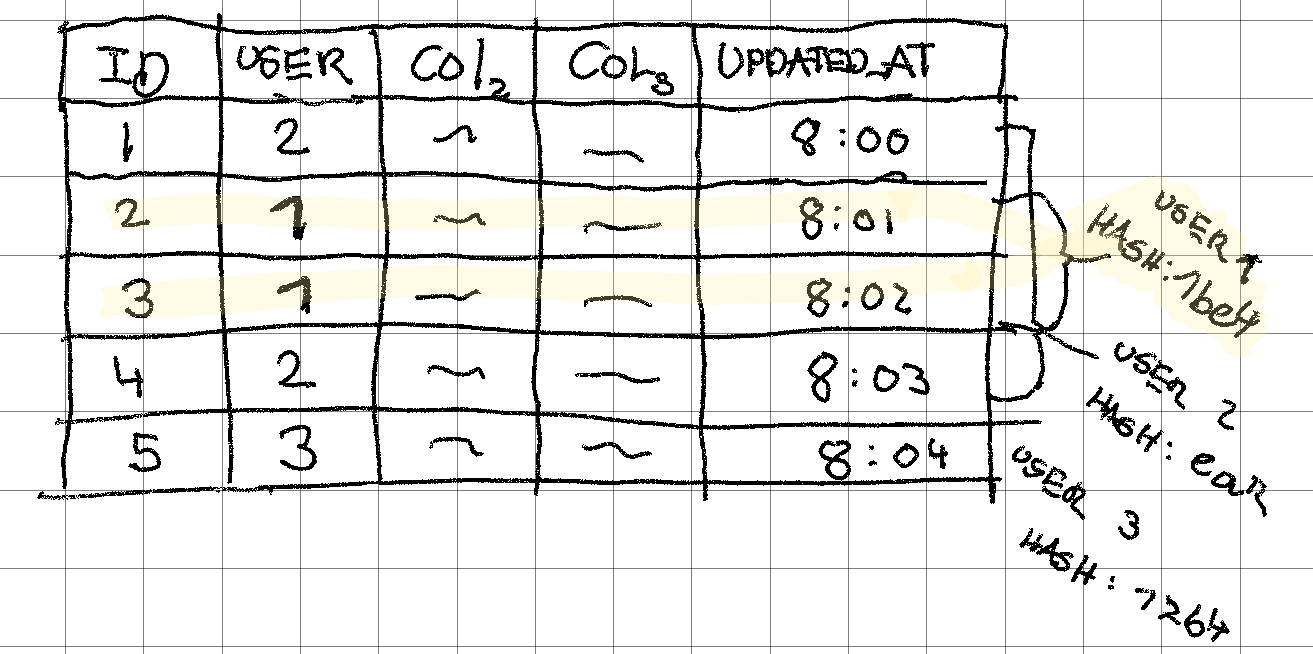 ID USER COL2 COL3 UPDATED_AT
1 2 8:00
2 1 8:01
3 1 8:02
4 2 8:03
5 3 8:04
USER 1
HASH: 1be4
USER 2
HASH:
USER 3
HASH: 7264